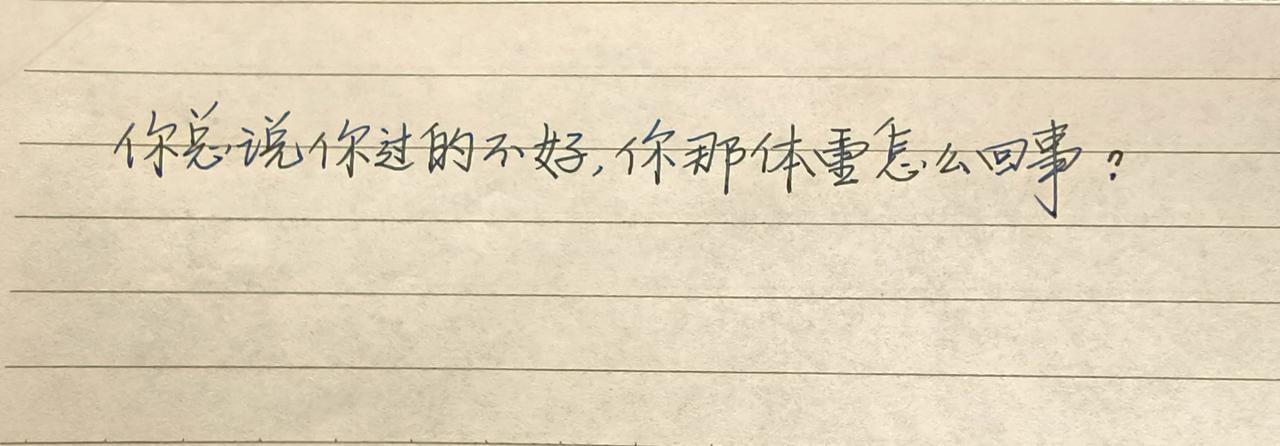 你总说你过的不好,你那体重怎么回事?